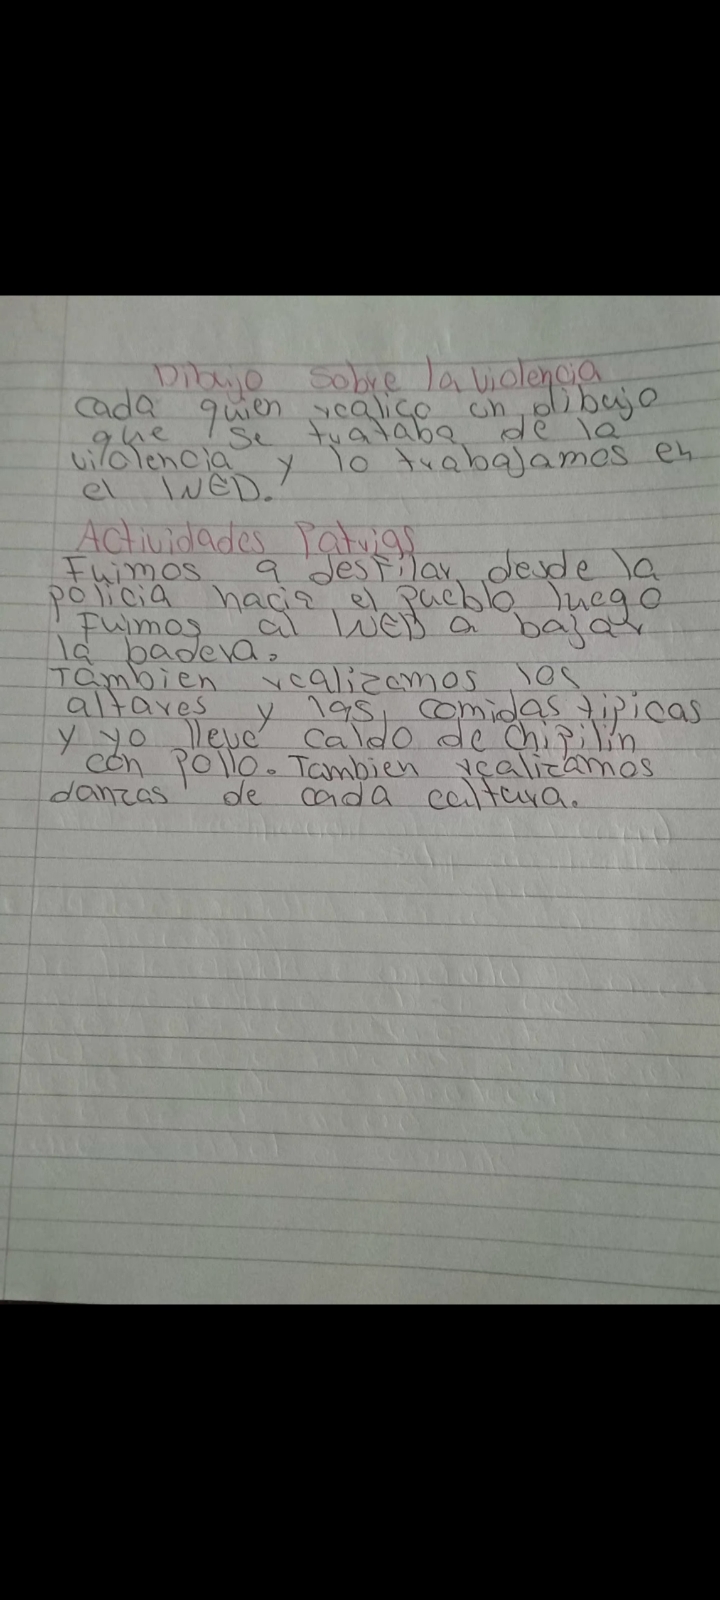 Dibujo sobre la violencia
cada quien realico un dibujo
que se trataba de la
vilolencia y lo trabajamos en
el INED.
Actividades Patrias
Fuimos a desfilar desde la
policia hacia el pueblo luego
Fuimos al INED a bajar
la badera.
Tambien realizamos los
altares y las comidas tipicas
y yo lleve caldo de chipilin
con pollo. Tambien realizamos
danzas de cada cultura.